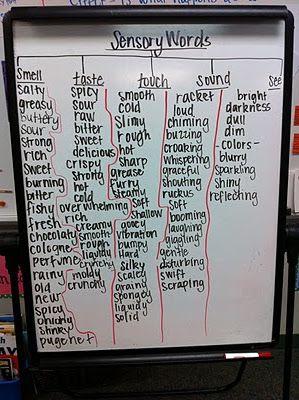 Sensory Words
Smell
salty
greasy
buttery
sour
strong
rich
sweet
burning
bitter
fishy
fresh
chocolaty
cologne
perfume
rainy
old
new
spicy
stinky
taste
spicy
sour
raw
bitter
sweet
delicious
crispy
strong
hot
cold
overwhelming
rich
creamy
smooth
rough
liquidy
crunchy
moldy
crunchy
touch
smooth
cold
slimy
rough
hot
sharp
grease
furry
steamy
soft
shallow
gooey
vibration
bumpy
Hard
silky
scaley
grainy
spongey
liquidy
solid
sound
racket
loud
chiming
buzzing
croaking
whispering
graceful
shouting
ruckus
soft
booming
laughing
giggling
gentle
disturbing
sniff
scraping
see
bright
darkness
dull
dim
-colors-
blurry
sparkling
shiny
reflecting